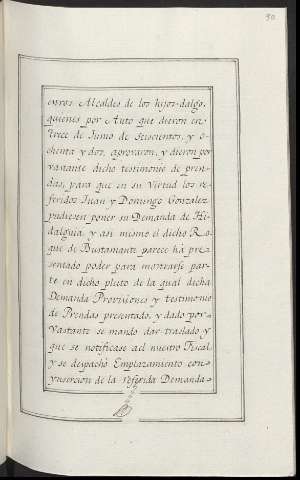 30
entros Alcaldes de los hijos-dalgo,
quienes por Auto que dieron en
trece de Junio de Seiscientos, y o-
chenta y dos, aprovaron, y dieron por
vastante dicho testimonio de pren-
das, para que en su Virtud los re-
feridos Juan y Domingo Gonzalez
pudiesen poner su Demanda de Hi-
dalguia, y asi mismo el dicho Ro-
que de Bustamante parece há pre-
sentado poder para mostrarse par-
te en dicho pleito de la qual dicha
Demanda Provisiones y testimonio
de Prendas presentado, y dado por
Vastante se mando dar traslado, y
que se notificase al nuestro Fiscal
y se despachó Emplazamiento con
ynsercion de la referida Demanda-